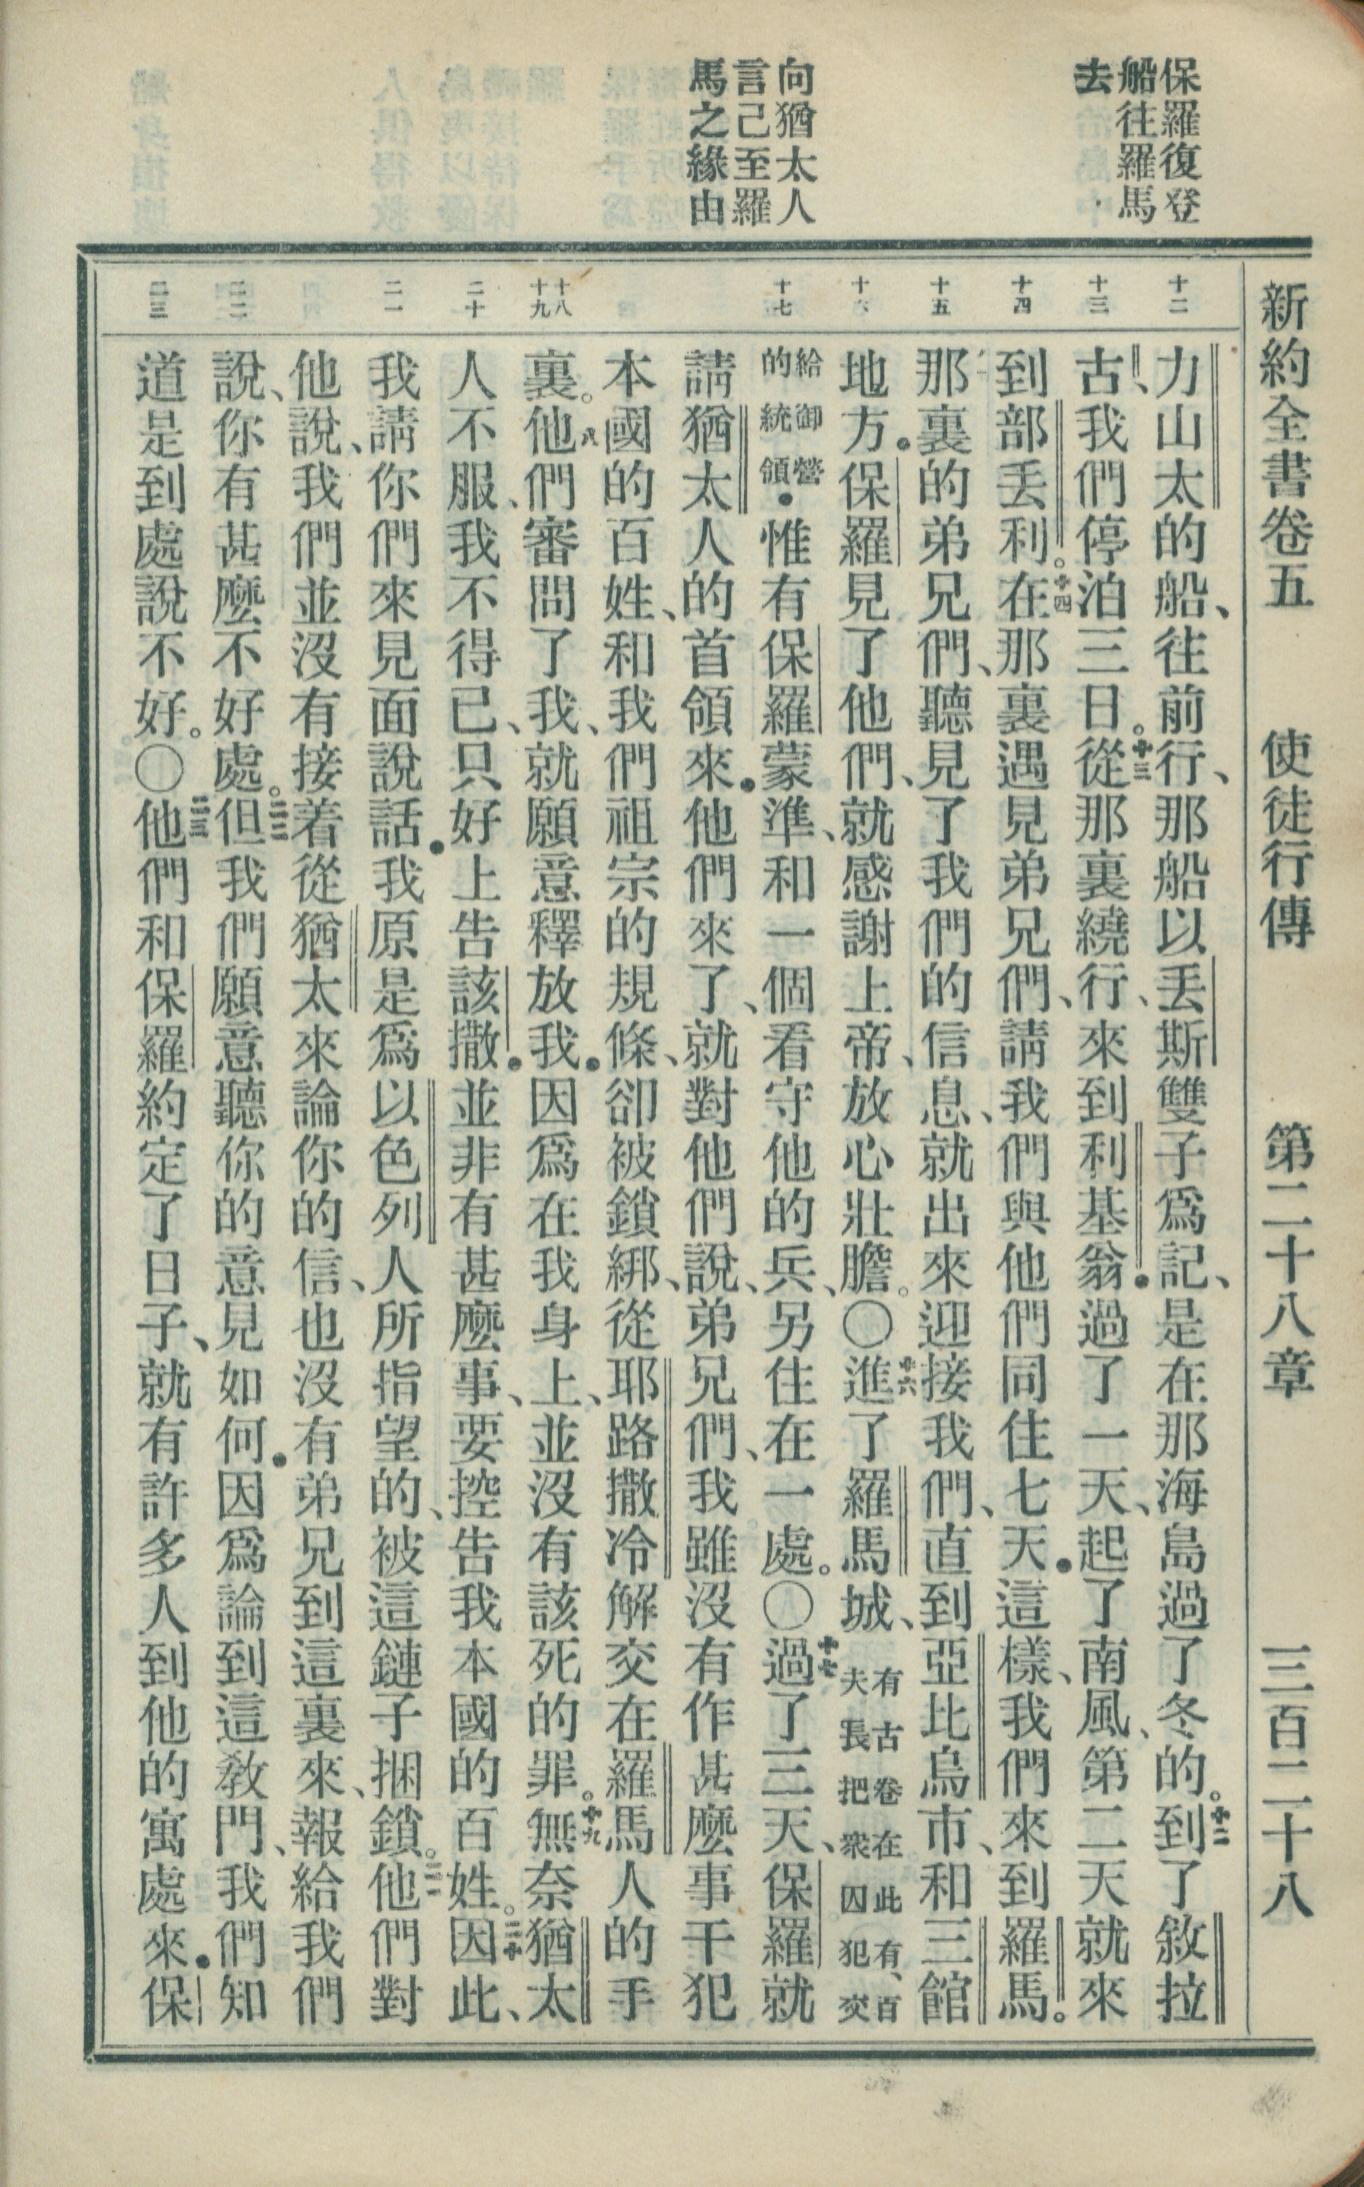 保羅復登
船往羅馬
去
向猶太人
言己至羅
馬之緣由
新約全書卷五 使徒行傳 第二十八章 三百二十八
十二
十三
十四
十五
十六
十七
十八
十九
二十
二一
二二
二三
力山太的船、往前行、那船以丢斯雙子爲記、是在那海島過了冬的。十二到了敘拉
古、我們停泊三日。十三從那裏繞行、來到利基翁•過了一天、起了南風、第二天就來
到部丢利。十四在那裏遇見弟兄們、請我們與他們同住七天•這樣、我們來到羅馬。
那裏的弟兄們、聽見了我們的信息、就出來迎接我們、直到亞比烏市、和三館
地方•保羅見了他們、就感謝上帝、放心壯膽。〇十六進了羅馬城、有古卷在此有、百夫長把衆囚犯交
給御營的統領•惟有保羅蒙準、和一個看守他的兵、另住在一處。〇十七過了三天、保羅就
請猶太人的首領來•他們來了、就對他們說、弟兄們、我雖沒有作甚麼事干犯
本國的百姓、和我們祖宗的規條、卻被鎖綁、從耶路撒冷解交在羅馬人的手
裏。十八他們審問了我、就願意釋放我•因爲在我身上、並沒有該死的罪。十九無奈猶太
人不服、我不得已、只好上告該撒•並非有甚麼事、要控告我本國的百姓。二十因此、
我請你們來見面說話•我原是爲以色列人所指望的、被這鏈子捆鎖。二一他們對
他說、我們並沒有接着從猶太來論你的信、也沒有弟兄到這裏來、報給我們
說、你有甚麼不好處。二二但我們願意聽你的意見如何•因爲論到這教門、我們知
道是到處說不好。〇二三他們和保羅約定了日子、就有許多人到他的寓處來•保